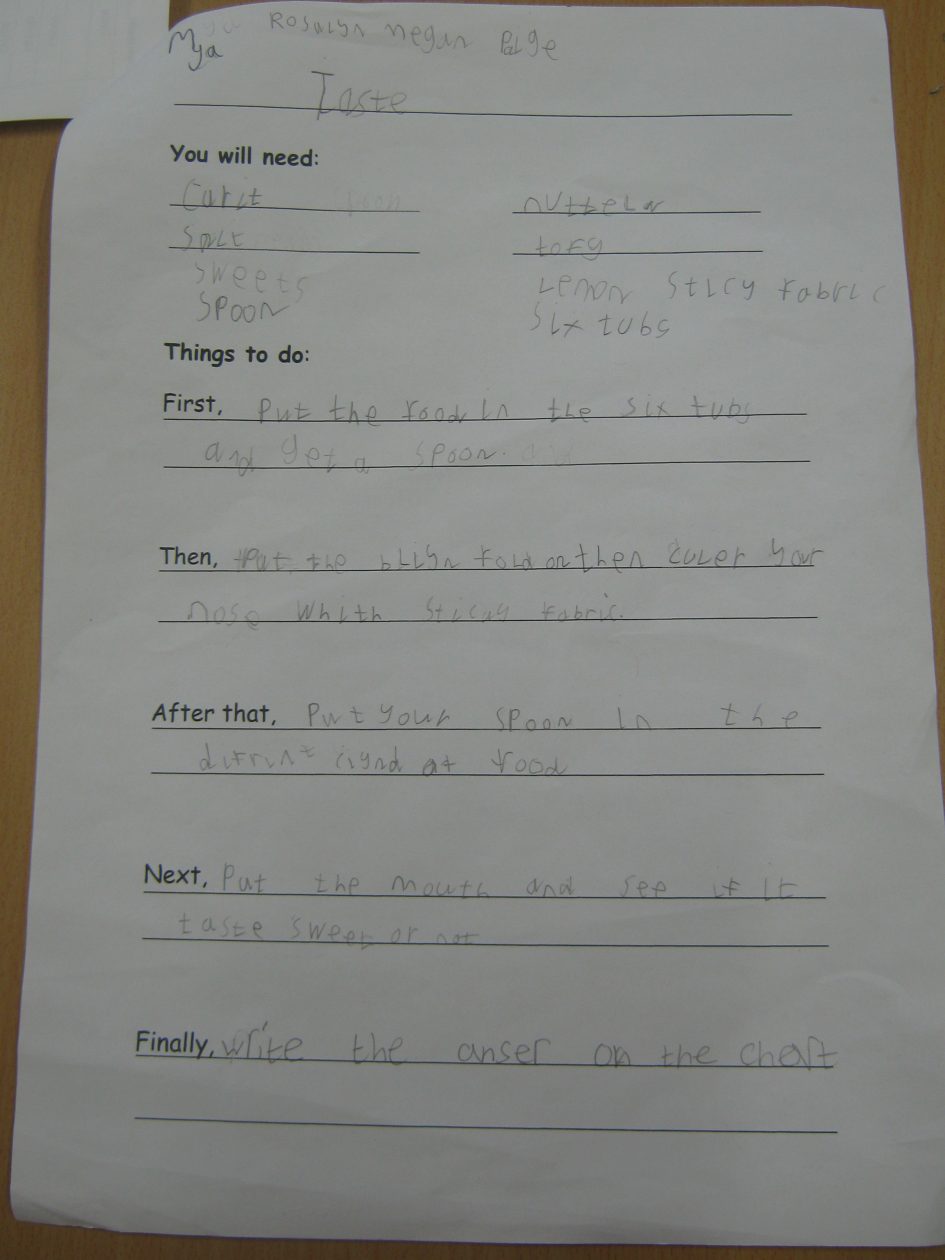 Mya Rosalyn megan Paige
Taste
You will need:
Carit nuttela
Salt tofy
sweets Lemon sticy fabric
spoon six tubs
Things to do:
First, Put the food in the six tubs
and get a spoon.
Then, Put the bliyn fold on then cuver your
nose whith sticuy fabric.
After that, Put your spoon in the
difrint cignd at food
Next, Put the mouth and see if it
taste sweet or not
Finally, write the anser on the chart